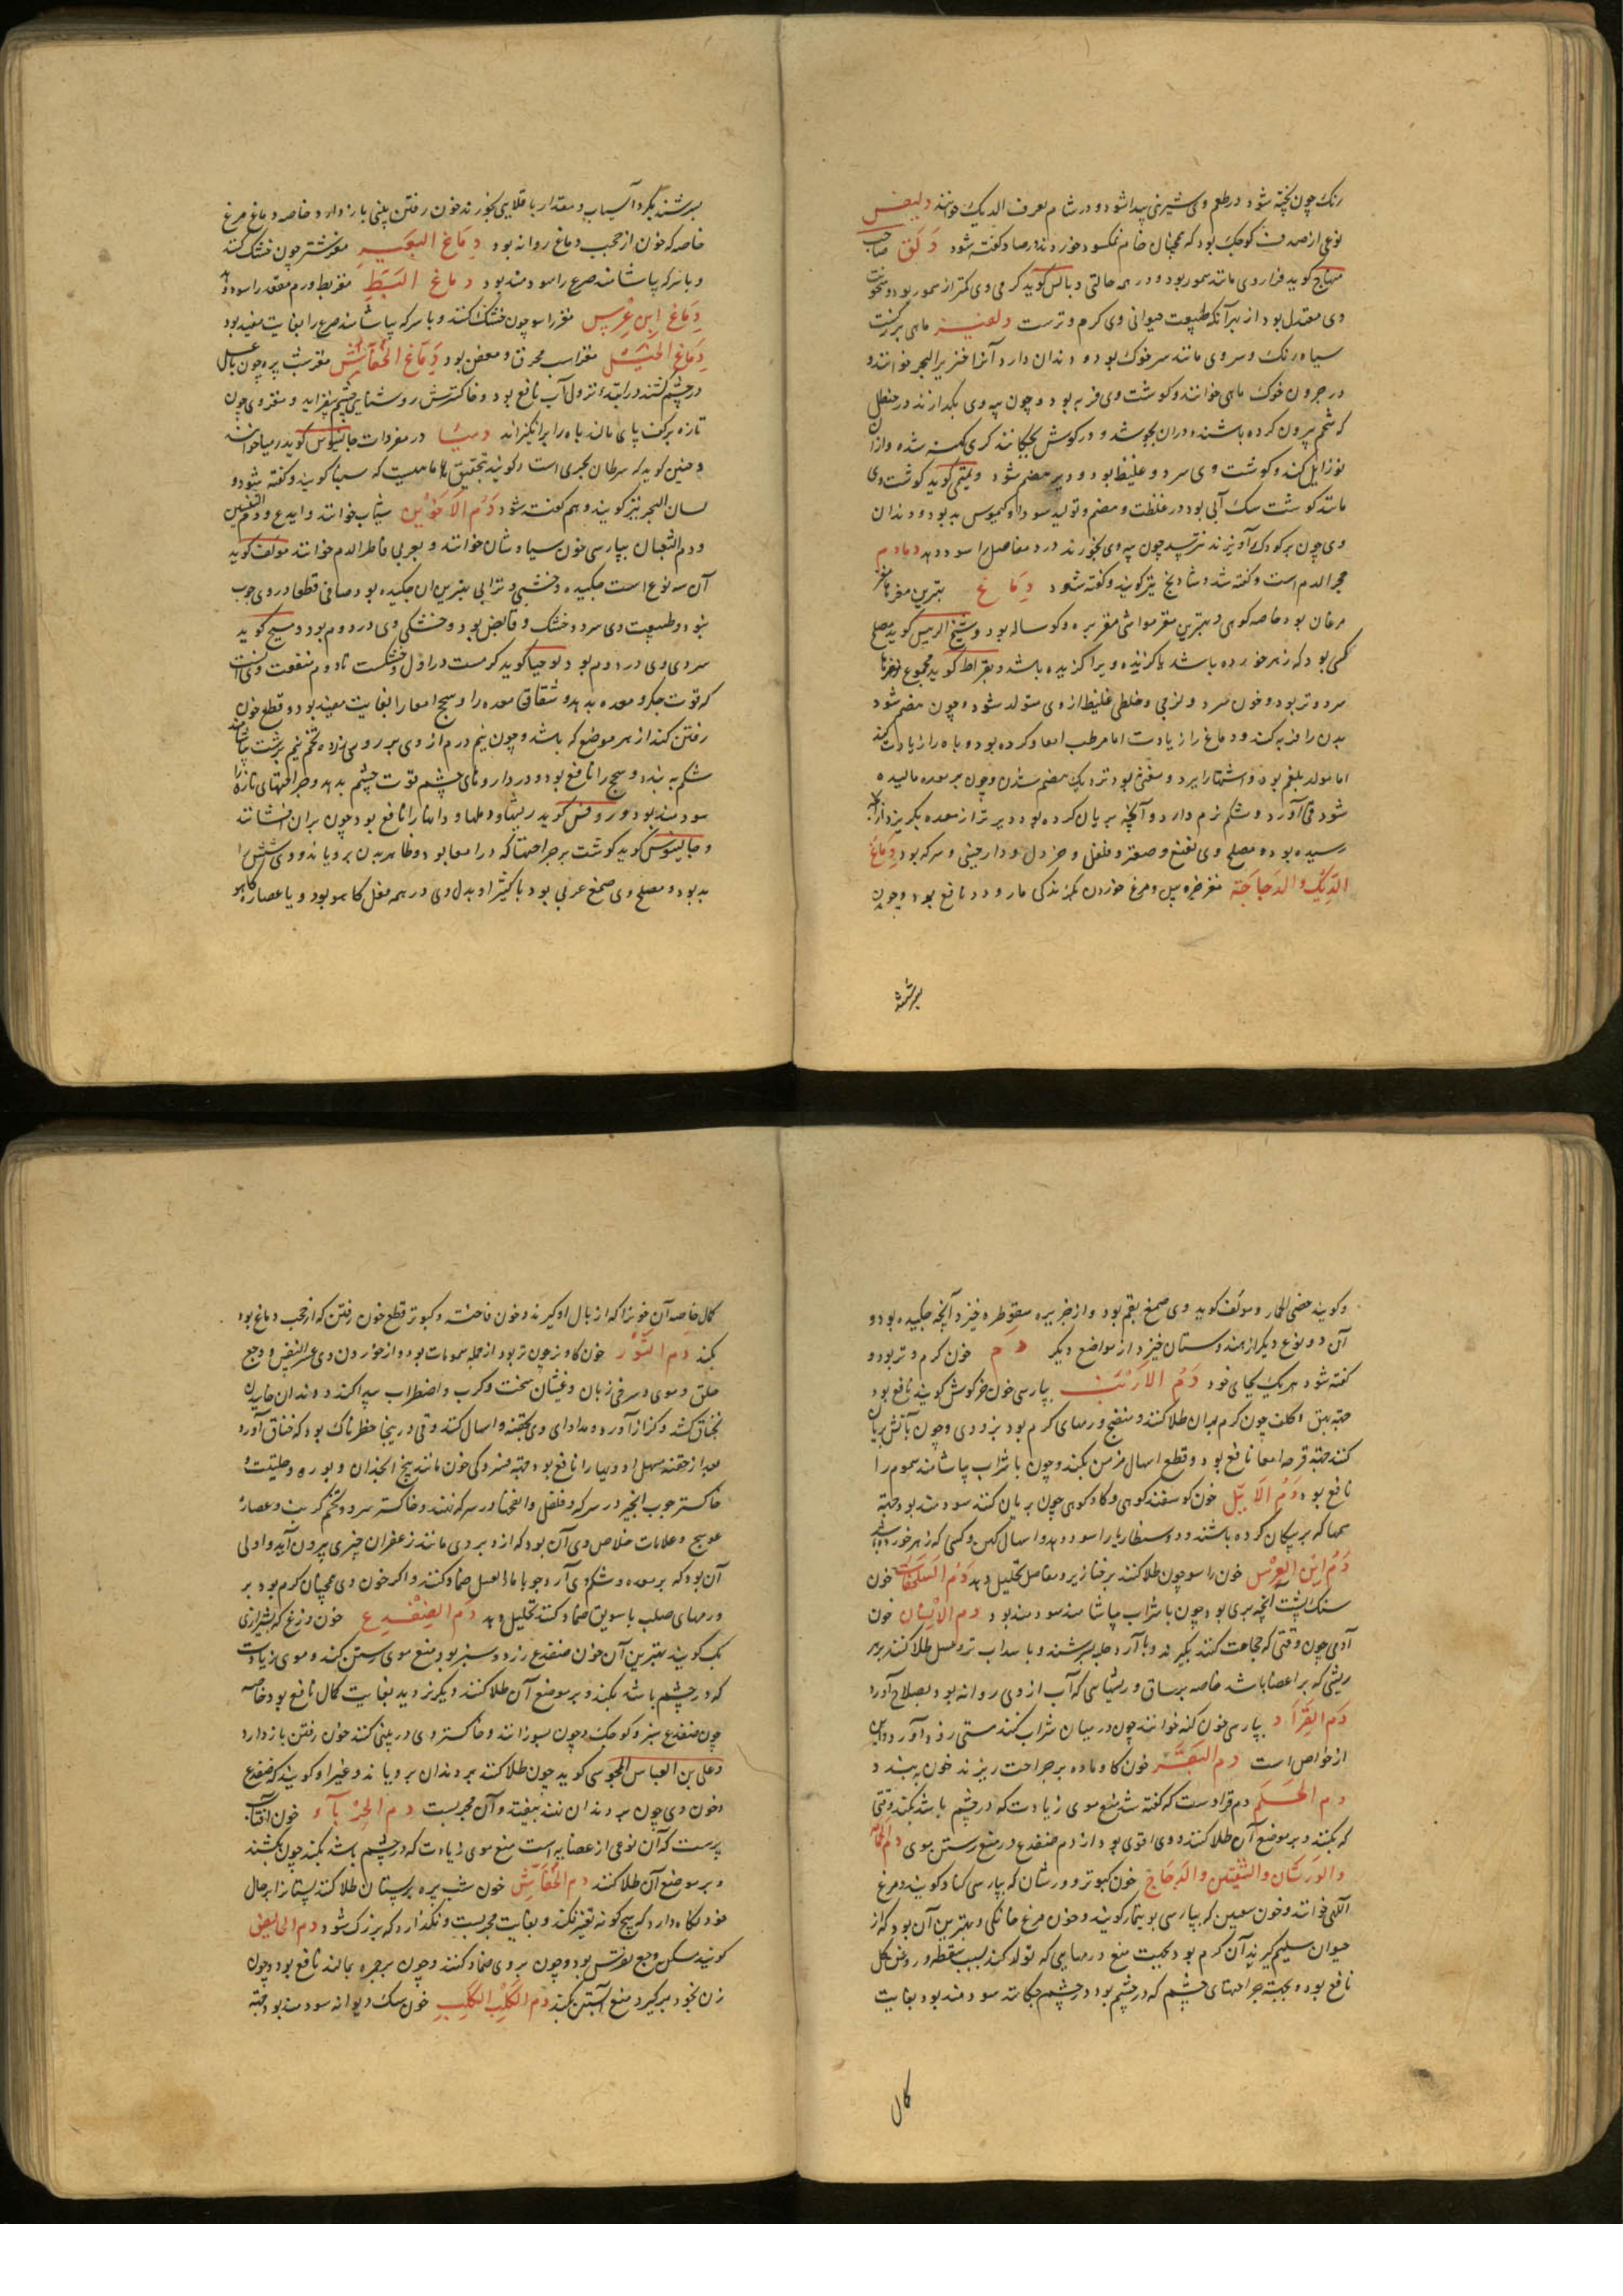 رنک چون پخته شود در طعم وی شیرینی پیدا شود و در شام بعرف الدیک خوانند دلیفس
نوعی از صدف کوچک بود که همچنان خام نمکسود خورند در صاد کفته شود دَلَق صاحب
منهاج کوید فرا روی مانند سمور بود و در همه حالتی و بالس کوید کرمی وی کمتر از سمور بود و سخونت
وی معتدل بود از بهر آنکه طبیعت حیوانی وی کرم و ترست دلفین ماهی بزرکست
سیاه رنک و سر وی مانند سر خوک بود و دندان دارد آنرا خنزیر البحر خوانند و
در جرون خوک ماهی خوانند و کوشت وی فربه بود و چون پیه وی بکدازند در حنظل
که شحم بیرون کرده باشند و دران بجوشد و در کوش چکانند کری کهنه شده و ازان
نو زایل کند و کوشت وی سرد و غلیظ بود و دیر هضم شود و تمیمی کوید کوشت وی
مانند کوشت سک آبی بود در غلظت و هضم و تولید سودا و کیموس بد بود و دندان
وی چون بر کودک آویزند نترسد چون پیه وی بخورند درد مفاصل را سود دهد دمادم
حجر الدم است و کفته شد و شادنج نیز کویند و کفته شود دِماغ بهترین مغزها مغز
مرغان بود خاصه کوهی و بهترین مغز مواشی مغز بره و کوساله بود و شیخ الرئیس کوید مصلح
کسی بود که زهر خورده باشد یا کزنده ویرا کزیده باشد و بقراط کوید مجموع مغزها
سرد و تر بود و خون سرد و لزجی و خلطی غلیظ از وی متولد شود و چون هضم شود
بدن را فربه کند و دماغ را زیادت اما مرطب امعا و کرده بود و باه را زیادت کند
اما مولد بلغم بود و اشتها را برد و مغثی بود نزدیک هضم شدن و چون بر معده مالیده
شود قی آورد و شکم نرم دارد و آنچه بریان کرده بود دیرتر از معده بکریزد از آنکه
رسیده بود و مصلح وی نعنع و صعتر و فلفل و خردل و دارچینی و سرکه بود دِماغ
الدِّیک والدَجاجَة مغز خروس و مرغ خوردن کزندکی مار و دد نافع بود و چون
بسرشند
بسرشند بکرد آسیاب و مقدار باقلایی بخورند خون رفتن بینی باز دارد خاصه دماغ مرغ
خاصه که خون از حجب دماغ روانه بود دِماغ البَعیر مغز شتر چون خشک کنند
و با سرکه بیاشامند صرع را سودمند بود دماغ البَطّ مغز بط ورم مقعد را سود دهد
دِماغ اِبن عِرْس مغز راسو چون خشک کنند و با سرکه بیاشامند صرع را بغایت مفید بود
دِماغ الخَیْل مغز اسب محرق و معفن بود دِماغ الخُفّاش مغز شب پره چون با عسل
در چشم کشند در ابتدا نزول آب نافع بود و خاکسترش روشنایی چشم بیفزاید و مغز وی چون
تازه بر کف پای مالند باه را برانکیزاند دمیثا در مفردات جالینوس کوید رمیا خوانند
و حنین کوید که سرطان بحری است و کویند تحقیق آنها ماهیست که سیبا کویند و کفته شود و
لسان البحر نیز کویند و هم کفته شود دَمُ الاَخَوَین شیاب خوانند و ایدع و دم التنین
و دم الثعبان بپارسی خون سیاوشان خوانند و بعربی قاطر الدم خوانند مؤلف کوید
آن سه نوع است چکیده و خشبی و ترابی بهترین آن چکیده بود صافی قطعا در وی چوب
نبود و طبیعت وی سرد و خشک و قابض بود و خشکی وی در دوم بود و مسیح کوید
سردی وی در دوم بود و یوحنا کوید کرمست در اول و خشکست تا دوم منفعت وی آنست
که قوت جکر و معده بدهد و شقاق معده را و سحج امعا را بغایت مفید بود و قطع خون
رفتن کند از هر موضع که باشد و چون نیم درم از وی بر روی زرده تخم نیم برشت بپاشانند
شکم ببندد و سحج را نافع بود و در داروهای چشم قوت چشم بدهد و جراحتهای تازه را
سودمند بود و روفس کوید ریشها و دملها و دانها را نافع بود چون بران افشانند
و جالینوس کوید کوشت بر جراحتها که در امعا بود و ظاهر بدن برویاند و وی شش را
بد بود و مصلح وی صمغ عربی بود با کثیرا و بدل وی در همه فعل کاهو بود و یا عصاره کاهو
و کویند حضی الحار و مولف کوید وی صمغ بقم بود و از جزیره سقوطره خیزد آنچه چکیده بود و
آن دو نوع دیکر از هندوستان خیزد و از مواضع دیکر دم خون کرم و تر بود و
کفته شود هر یک بجای خود دَمُ الاَرنَب بپارسی خون خرکوش کویند نافع بود
جهة بهق و کلف چون کرم بدان طلا کنند و منضج ورمهای کرم بود بزودی و چون بآتش بریان
کنند جهة قرحه امعا نافع بود و قطع اسهال مزمن بکند و چون با شراب بیاشامند سموم را
نافع بود دَمُ الاَیِّل خون کوسفند کوهی و کاو کوهی چون بریان کنند سودمند بود جهة
سمها که بر پیکان کرده باشند و دوسنطاریا را سود دهد و اسهال کهن و کسی که زهر خورده باشد
دَمُ اِبن العِرْس خون راسو چون طلا کنند بر خنازیر و مفاصل تحلیل دهد دَمُ السُّلَحفاة خون
سنک پشت آنچه بری بود چون با شراب بیاشامند سودمند بود دم الانسان خون
آدمی چون وقتی که حجامت کنند بکیرند و با آرد حلبه بسرشند و با سداب تر و عسل طلا کنند بر هر
ریشی که بر اعضا باشد خاصه بر ساق و ریشهایی که آب از وی روانه بود بصلاح آورد
دَم القِرَاد بپارسی خون کنه خوانند چون در میان شراب کنند مستی زود آورد و این
از خواص است دم البَقَر خون کاو ماده بر جراحت ریزند خون ببندد
دم الحَلَم دم قرادست که کفته شد منع موی زیادت که در چشم باشد بکند وقتی
که بکنند و بر موضع آن طلا کنند و وی اقوی بود از دم ضفدع در منع رستن موی دَم الحَمام
والوَرشان والشِفنین والدجاج خون کبوتر و ورشان که بپارسی کناد کویند و مرغ
الکهی خوانند و خون شفنین که بپارسی بوتیمار کویند و خون مرغ خانکی و بهترین آن بود که از
حیوان سلیم کیرند آن کرم بود بجهت منع ورمهایی که تولد کند بسبب سقطه و روغن کل
نافع بود و بجهة جراحتهای چشم که در چشم بود در چشم چکانند سودمند بود بغایت
کمال
کمال خاصه آن خونرا که از بال او کیرند و خون فاخته و کبوتر قطع خون رفتن که از حجب دماغ بود
بکند دم الثَّور خون کاو نر چون تر بود از جمله سمومات بود و از خوردن وی عسر النفس و وجع
حلق و موی و سرخی زبان و غثیان سخت و کرب و اضطراب پیدا کند و دندان خاید
خناق کشد و کزاز آورد و مداوای وی بحقنه و اسهال کنند و قی درینجا خطرناک بود که خناق آورد
بعد از حقنه سهل ادویها را نافع بود جهة فسردکی خون مانند بیخ انجدان و بوره و حلتیت و
خاکستر چوب انجیر در سرکه و فلفل و انفحها در سرکه نهند و خاکستر سرو و تخم کرنب و عصاره
عوسج و علامات خلاص وی آن بود که از دبر وی مانند زعفران چیزی بیرون آید و اولی
آن بود که بر معده و شکم وی آرد جو با ماء العسل ضماد کنند و اکر خون وی همچنان کرم بود بر
ورمهای صلب با سویق ضماد کنند تحلیل دهد دَم الضِفدِع خون وزغ که بشیرازی
بک کویند بهترین آن خون ضفدع زرد و سبز بود منع موی رستن کند و موی زیادت
که در چشم باشد بکنند و بر موضع آن طلا کنند دیکر نروید بغایت کمال نافع بود خاصه
چون ضفدع سبز و کوچک و چون بسوزانند و خاکستر وی در بینی کنند خون رفتن باز دارد
و علی بن العباس المجوسی کوید چون طلا کنند بر دندان برویاند و غیر او کویند که ضفدع
و خون وی چون بر دندان نهند بیفتد و آن مجربست دم الحِرْبَآء خون آفتاب
پرست که آن نوعی از عضایه است منع موی زیادت که در چشم باشد بکند چون بکشند
و بر موضع آن طلا کنند دم الخُفّاش خون شب پره بر پستان طلا کنند پستانرا بر حال
خود نکاه دارد که هیچ کونه تغیر نکند و بغایت مجربست و نکذارد که بزرک شود دم الحائض
کویند مسکن وجع نقرس بود و چون بر وی ضماد کنند و چون بر جرب بمالند نافع بود و چون
زن بخود برکیرد منع آبستنی بکند دَم الکَلْب الکَلِب خون سک دیوانه سودمند بود جهة